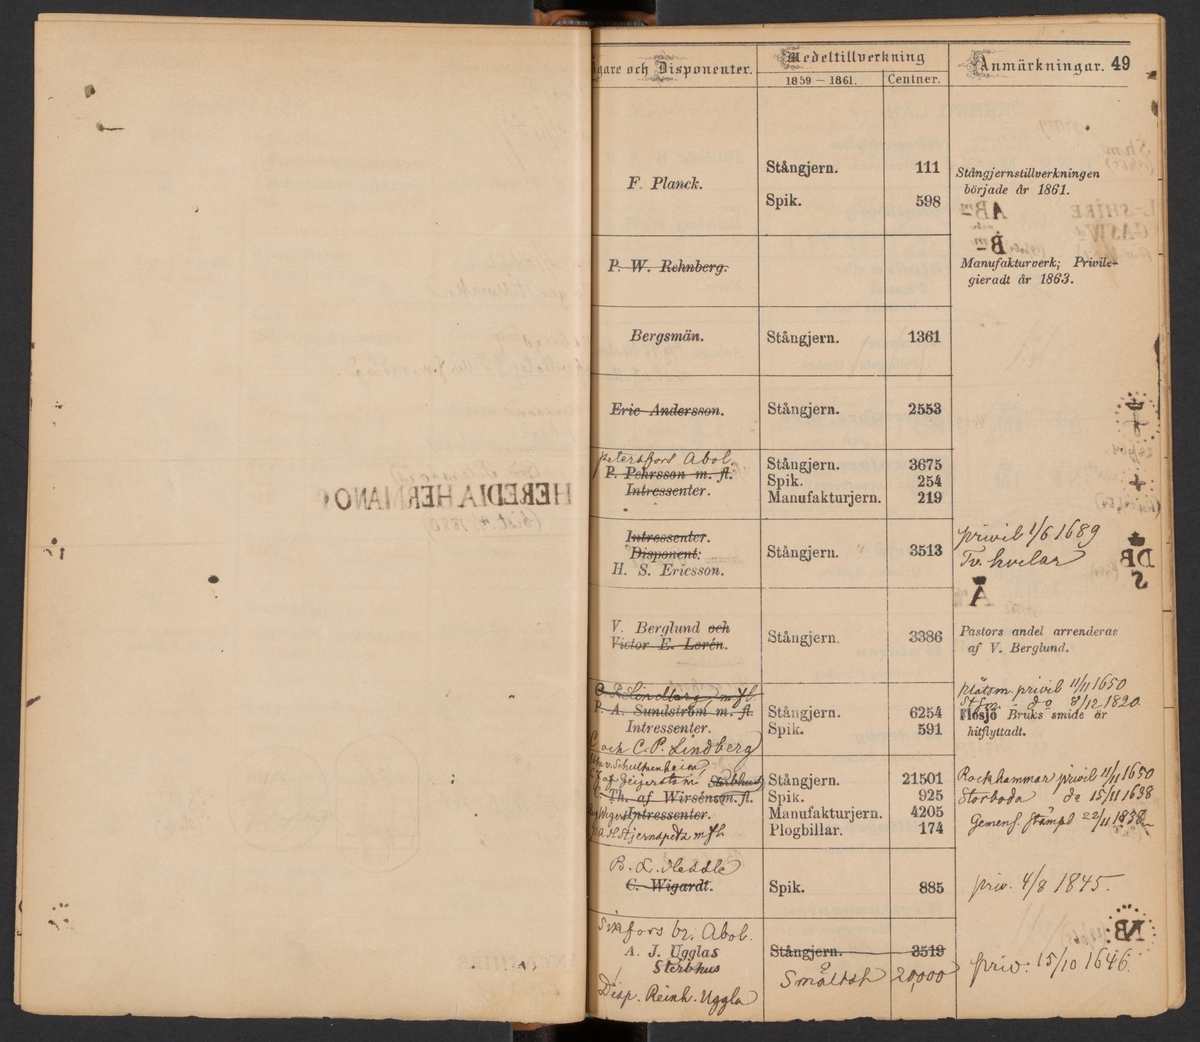 Ägare och Disponenter. Medeltillverkning Anmärkningar. 49
1859 — 1861. Centner.
F. Planck. Stångjern. 111
Spik. 598
Stångjernstillverkningen
började år 1861.
P. W. Rehnberg.
Manufakturverk; Privile-
gieradt år 1863.
Bergsmän. Stångjern. 1361
Eric Andersson. Stångjern. 2553
Petersfors Abol.
P. Pehrsson m. fl.
Intressenter.
Stångjern. 3675
Spik. 254
Manufakturjern. 219
HEREDIA HERMANOS
Intressenter.
Disponent:
H. S. Ericsson.
Stångjern. 3513
privil 1/6 1689
Tv. hvelar
DB
S
V. Berglund och
Victor E. Lorén.
Stångjern. 3386
Pastors andel arrenderas
af V. Berglund.
Lindberg m fl.
P. A. Sundström m. fl.
Intressenter.
C och C. P. Lindberg
Stångjern. 6254
Spik. 591
privil 11/11 1650
do 8/12 1820.
Flosjö Bruks smide är
hitflyttadt.
v. Schultzenheim
af Geijerstam Sterbhus
C. Th. af Wirséns m. fl.
Intressenter.
Stjernspetz m fl
Stångjern. 21501
Spik. 925
Manufakturjern. 4205
Plogbillar. 174
Rockhammar privil 11/11 1650
Storboda do 15/11 1638
Gemens. Stämpl 22/11 1838
B. L.
C. Wigardt.
Spik. 885
priv. 4/8 1845.
fors br. Abol.
A. J. Ugglas
Sterbhus
Disp. Reinh. Uggla
Stångjern. 3519
Smältst 20,000
priv: 15/10 1646.
NB